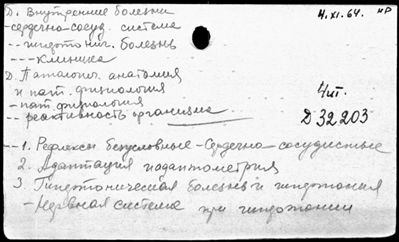 Д. Внутренние болезни
-сердечно-сосуд. система
-- гипертонич. болезнь
--- клиника
Д. Патологич. анатомия
и пат. физиология
- пат. физиология
-- реактивность организма
4.XI.64. нр
Чит.
Д 32 203
-- 1. Рефлексы безусловные - Сердечно-сосудистые
2. Адаптация и адаптометрия
3. Гипертоническая болезнь и гипертония
- Нервная система при гипертонии